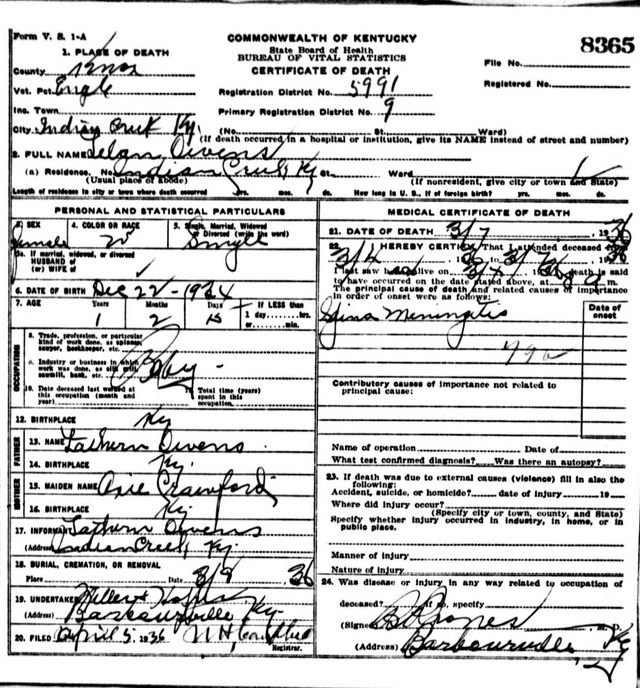 Form V. S. 1-A
COMMONWEALTH OF KENTUCKY
State Board of Health
BUREAU OF VITAL STATISTICS
CERTIFICATE OF DEATH
8365
File No.
Registered No.
1. PLACE OF DEATH
County Knox
Vot. Pct. Engle
Inc. Town
City Indian Creek Ky.
Registration District No. 5991
Primary Registration District No. 9
(No. St. Ward)
(If death occurred in a hospital or institution, give its NAME instead of street and number)
2. FULL NAME Owens
(a) Residence. No. Indian Creek Ky St. Ward
(Usual place of abode) (If nonresident, give city or town and State)
Length of residence in city or town where death occurred yrs. mos. ds. How long in U. S., if of foreign birth? yrs. mos. ds.
PERSONAL AND STATISTICAL PARTICULARS
3. SEX Female
4. COLOR OR RACE W
5. Single, Married, Widowed or Divorced (write the word) Single
5a. If married, widowed, or divorced
HUSBAND of
(or) WIFE of
6. DATE OF BIRTH Dec 22 - 1934
7. AGE Years 1 Months 2 Days 15 If LESS than 1 day......hrs. or......min.
OCCUPATION
8. Trade, profession, or particular kind of work done, as spinner, sawyer, bookkeeper, etc.
9. Industry or business in which work was done, as silk mill, sawmill, bank, etc. Baby -
10. Date deceased last worked at this occupation (month and year)
11. Total time (years) spent in this occupation
12. BIRTHPLACE Ky
FATHER
13. NAME Owens
14. BIRTHPLACE Ky.
MOTHER
15. MAIDEN NAME Crawford
16. BIRTHPLACE Ky
17. INFORMANT Owens
(Address) Indian Creek Ky
18. BURIAL, CREMATION, OR REMOVAL
Place Date 3/8 36
19. UNDERTAKER
(Address) Barbourville, Ky.
20. FILED April 5, 1936
MEDICAL CERTIFICATE OF DEATH
21. DATE OF DEATH 3/7, 1936
22. I HEREBY CERTIFY, That I attended deceased from
3/4 36 to 3/7 36
I last saw h alive on 3/4 1936 death is said
to have occurred on the date stated above, at 8 a m.
The principal cause of death and related causes of importance in order of onset were as follows:
Date of onset
Meningitis
Contributory causes of importance not related to principal cause:
Name of operation Date of
What test confirmed diagnosis? Was there an autopsy?
23. If death was due to external causes (violence) fill in also the following:
Accident, suicide, or homicide? date of injury 19
Where did injury occur?
(Specify city or town, county, and State)
Specify whether injury occurred in industry, in home, or in public place.
Manner of injury
Nature of injury
24. Was disease or injury in any way related to occupation of
deceased? If so, specify
(Signed) Jones M. D.
(Address) Barbourville Ky